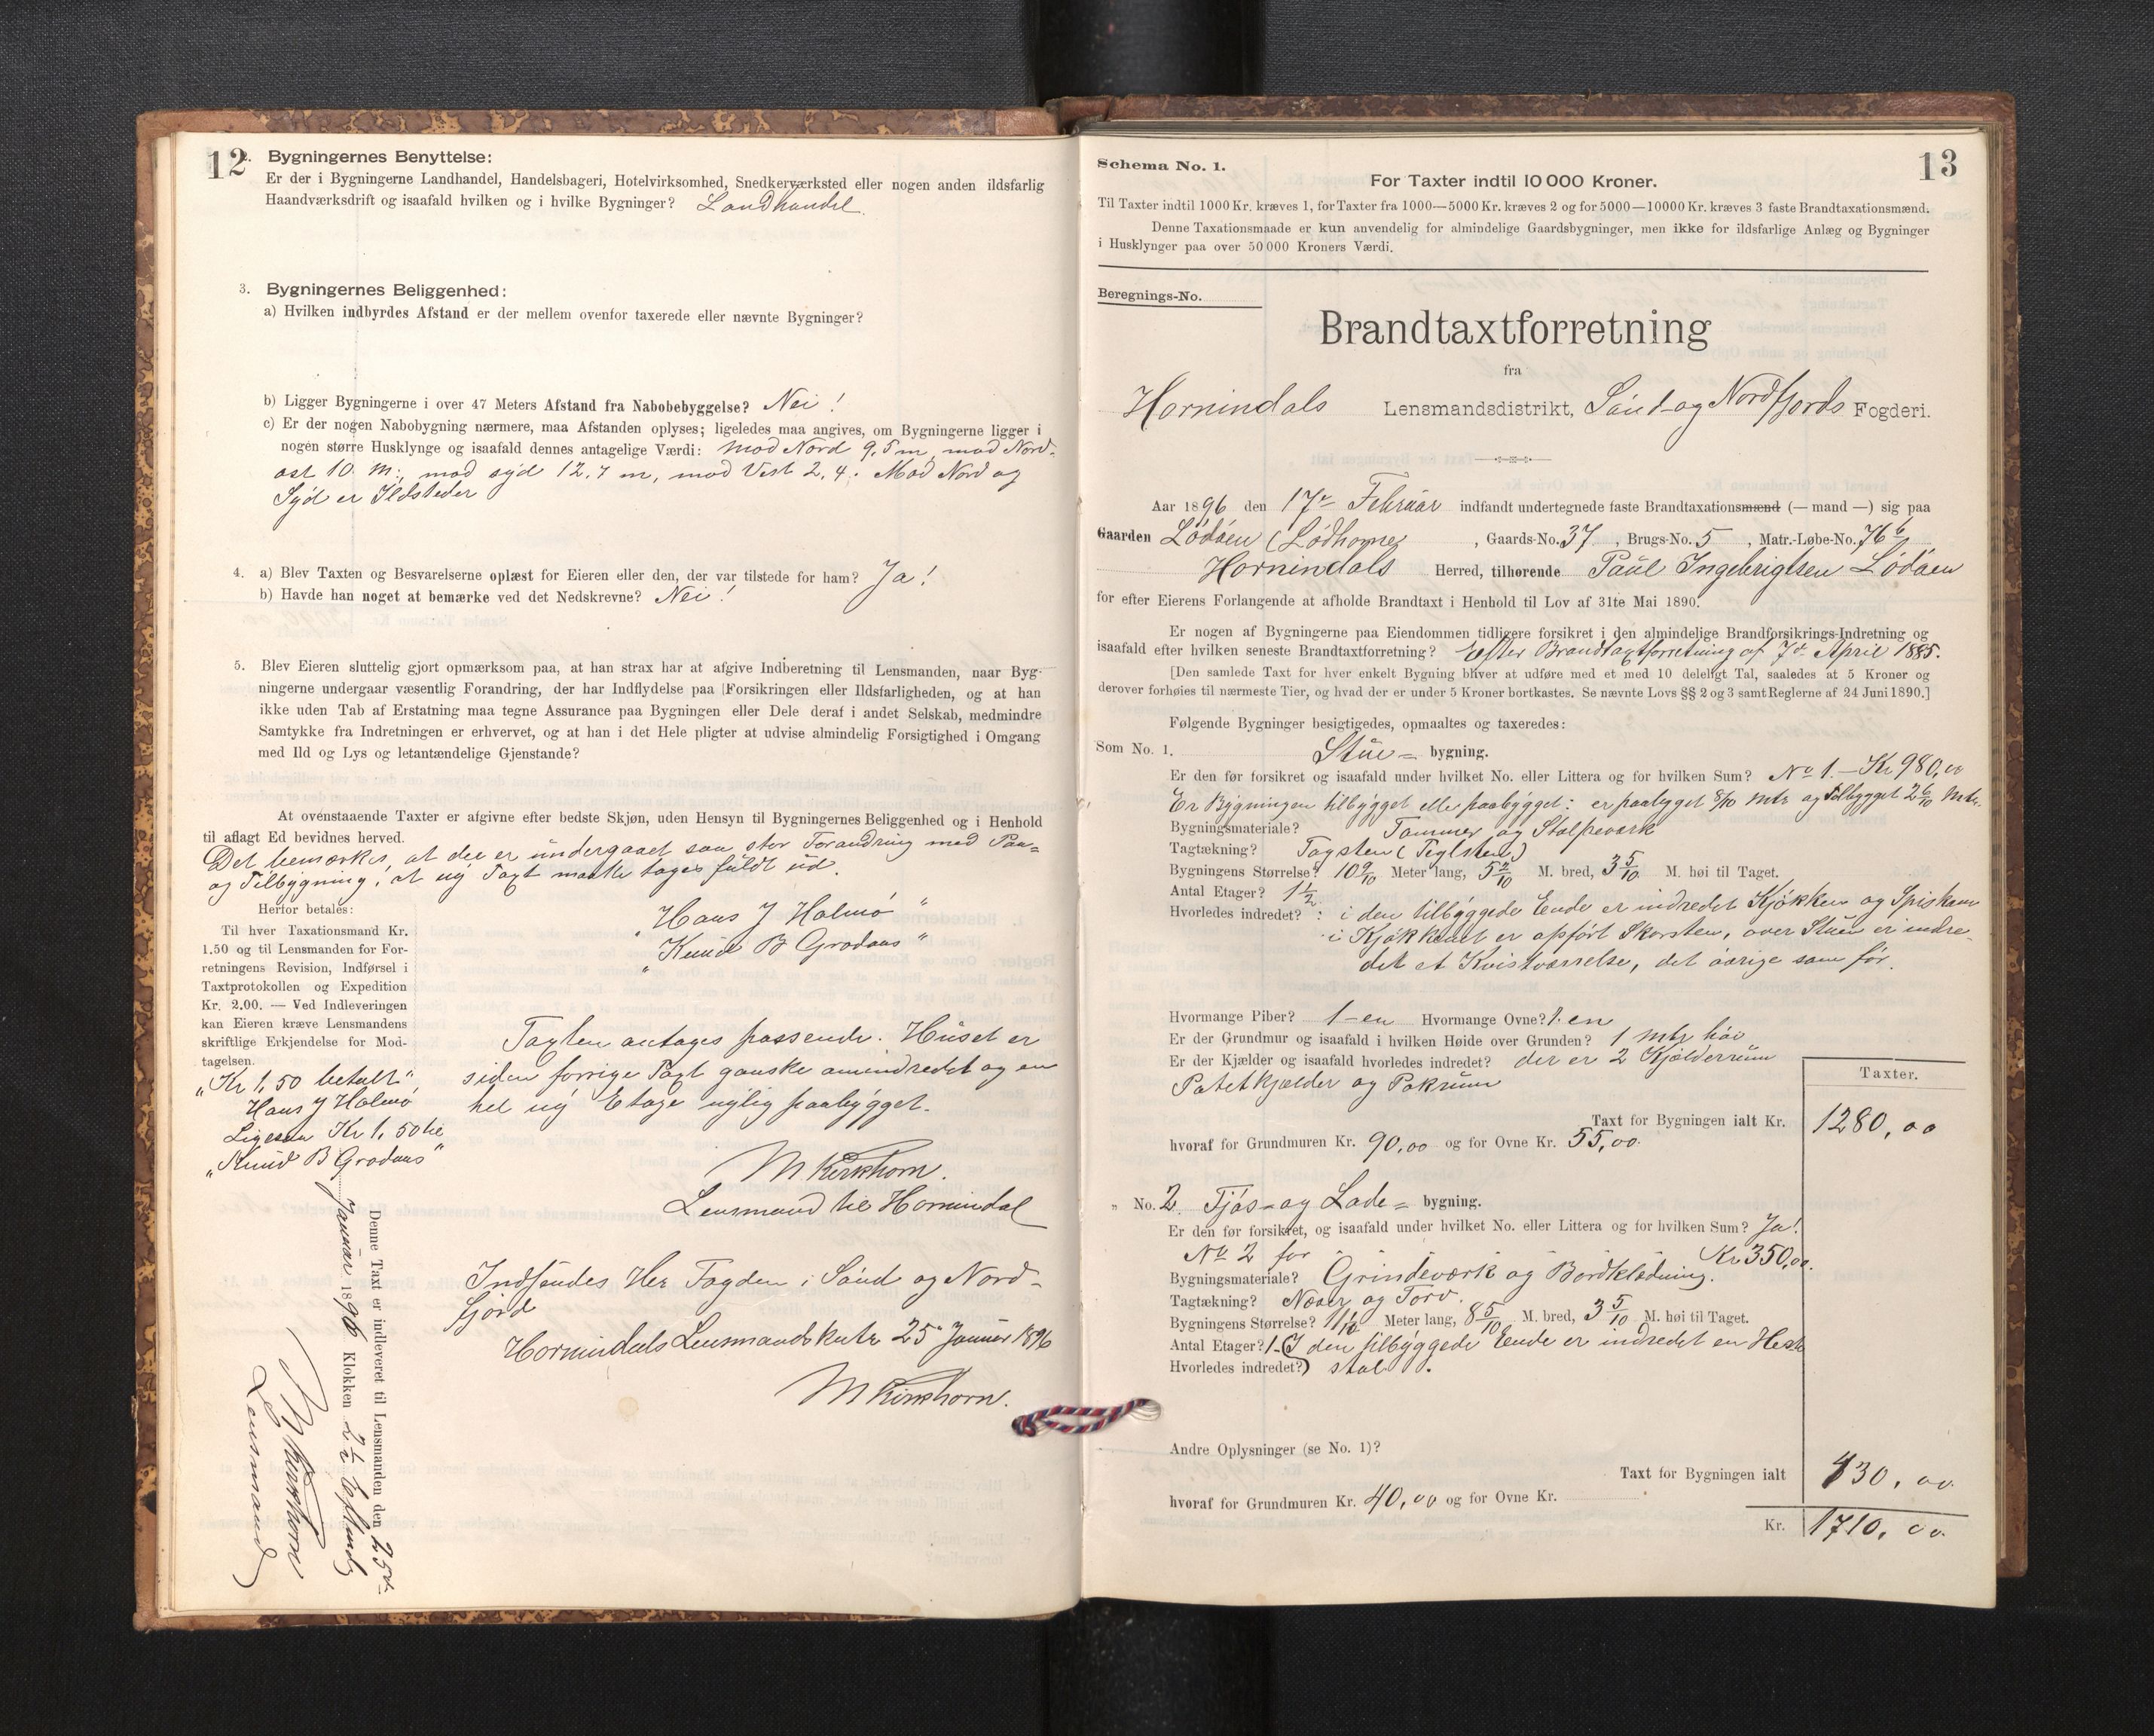 12
2. Bygningernes Benyttelse:
Er der i Bygningerne Landhandel, Handelsbageri, Hotelvirksomhed, Snedkerværksted eller nogen anden ildsfarlig
Haandværksdrift og isaafald hvilken og i hvilke Bygninger? Landhandel.
3. Bygningernes Beliggenhed:
a) Hvilken indbyrdes Afstand er der mellem ovenfor taxerede eller nævnte Bygninger?
b) Ligger Bygningerne i over 47 Meters Afstand fra Nabobebyggelse? Nei!
c) Er der nogen Nabobygning nærmere, maa Afstanden oplyses; ligeledes maa angives, om Bygningerne ligger i
nogen større Husklynge og isaafald dennes antagelige Værdi: mod Nord 9,5 m, mod Nord-
ost 10 m; mod syd 12,7 m, mod Vest 2,4. Mod Nord og
Syd er Ildsteder
4. a) Blev Taxten og Besvarelserne oplæst for Eieren eller den, der var tilstede for ham? Ja!
b) Havde han noget at bemærke ved det Nedskrevne? Nei!
5. Blev Eieren sluttelig gjort opmærksom paa, at han strax har at afgive Indberetning til Lensmanden, naar Byg-
ningerne undergaar væsentlig Forandring, der har Indflydelse paa Forsikringen eller Ildsfarligheden, og at han
ikke uden Tab af Erstatning maa tegne Assurance paa Bygningen eller Dele deraf i andet Selskab, medmindre
Samtykke fra Indretningen er erhvervet, og at han i det Hele pligter at udvise almindelig Forsigtighed i Omgang
med Ild og Lys og letantændelige Gjenstande?
At ovenstaaende Taxter er afgivne efter bedste Skjøn, uden Hensyn til Bygningernes Beliggenhed og i Henhold
til aflagt Ed bevidnes herved.
Det bemærkes, at der er undergaaet saa stor Forandring med Paa-
og Tilbygning, at ny Taxt maatte tages fuldt ud.
"Hans J Holmø"
"Knud B Grodaas"
Herfor betales:
Til hver Taxationsmand Kr.
1.50 og til Lensmanden for For-
retningens Revision, Indførsel i
Taxtprotokollen og Expedition
Kr. 2.00. — Ved Indleveringen
kan Eieren kræve Lensmandens
skriftlige Erkjendelse for Mod-
tagelsen.
"Kr 1,50 betalt"
Hans J Holmø
Ligesaa Kr 1,50
"Knud B Grodaas"
Taxten antages passende. Huset er
siden forrige Taxt ganske omindredet og en
hel ny Etage nylig paabygget.
M Kirkhorn.
Lensmand til Hornindal
Indsendes Her Fogden i Sønd og Nord-
fjord
Hornindals Lensmandskntr 25 Januar 1896
M Kirkhorn.
Denne Taxt er indleveret til Lensmanden den 25de
Januar 1896 Klokken 2½ Eftmdg
M Kirkhorn
Lensmand
13
Schema No. 1.
For Taxter indtil 10 000 Kroner.
Til Taxter indtil 1000 Kr. kræves 1, for Taxter fra 1000—5000 Kr. kræves 2 og for 5000—10000 Kr. kræves 3 faste Brandtaxationsmænd.
Denne Taxationsmaade er kun anvendelig for almindelige Gaardsbygninger, men ikke for ildsfarlige Anlæg og Bygninger
i Husklynger paa over 50 000 Kroners Værdi.
Beregnings-No.
Brandtaxtforretning
fra
Hornindals Lensmandsdistrikt, Sønd- og Nordfjords Fogderi.
Aar 1896 den 17de Februar indfandt undertegnede faste Brandtaxationsmænd (— mand —) sig paa
Gaarden Lødøen (Lødhorne, Gaards-No. 37, Brugs-No. 5, Matr.-Løbe-No. 76b
Hornindals Herred, tilhørende Paul Ingebrigtsen Lødøen
for efter Eierens Forlangende at afholde Brandtaxt i Henhold til Lov af 31te Mai 1890.
Er nogen af Bygningerne paa Eiendommen tidligere forsikret i den almindelige Brandforsikrings-Indretning og
isaafald efter hvilken seneste Brandtaxtforretning? Efter Brandtaxtforretning af 7de April 1885.
[Den samlede Taxt for hver enkelt Bygning bliver at udføre med et med 10 deleligt Tal, saaledes at 5 Kroner og
derover forhøies til nærmeste Tier, og hvad der er under 5 Kroner bortkastes. Se nævnte Lovs §§ 2 og 3 samt Reglerne af 24 Juni 1890.]
Følgende Bygninger besigtigedes, opmaaltes og taxeredes:
Som No. 1. Stue- bygning.
Er den før forsikret og isaafald under hvilket No. eller Littera og for hvilken Sum? No 1. — Kr 980,00
Er Bygningen tilbygget elle paabygget: er paabyget 8/10 mtr og Tilbygget 2 6/10 mtr.
Bygningsmateriale? Tømmer og Stolpeværk
Tagtækning? Tagsten (Teglsten)
Bygningens Størrelse? 10 9/10 Meter lang, 5 2/10 M. bred, 3 5/10 M. høi til Taget.
Antal Etager? 1½
Hvorledes indredet? : i den tilbyggede Ende er indredet Kjøkken og Spiskam
i Kjøkkenet er opført Skorsten, over Stuen er indre-
det et Kvistværelse, det øvrige som før.
Hvormange Piber? 1-en Hvormange Ovne? 1. en
Er der Grundmur og isaafald i hvilken Høide over Grunden? 1 mtr høi
Er der Kjælder og isaafald hvorledes indredet? der er 2 Kjælderrum
Potetkjælder og Pakrum
Taxter.
Taxt for Bygningen ialt Kr. 1280,00
hvoraf for Grundmuren Kr. 90,00 og for Ovne Kr. 55,00.
" No. 2. Fjøs- og Lade- bygning.
Er den før forsikret, og isaafald under hvilket No. eller Littera og for hvilken Sum? Ja!
No 2 for Kr 350,00.
Bygningsmateriale? Grindeværk og Bordklædning.
Tagtækning? Næver og Torv.
Bygningens Størrelse? Meter lang, 8 5/10 M. bred, 3 5/10 M. høi til Taget.
Antal Etager? 1- (I den tilbyggede Ende er indredet en Heste
Hvorledes indredet?) stal.
Andre Oplysninger (se No. 1)?
Taxt for Bygningen ialt 430,00
hvoraf for Grundmuren Kr. 40,00 og for Ovne Kr.
Kr. 1710,00